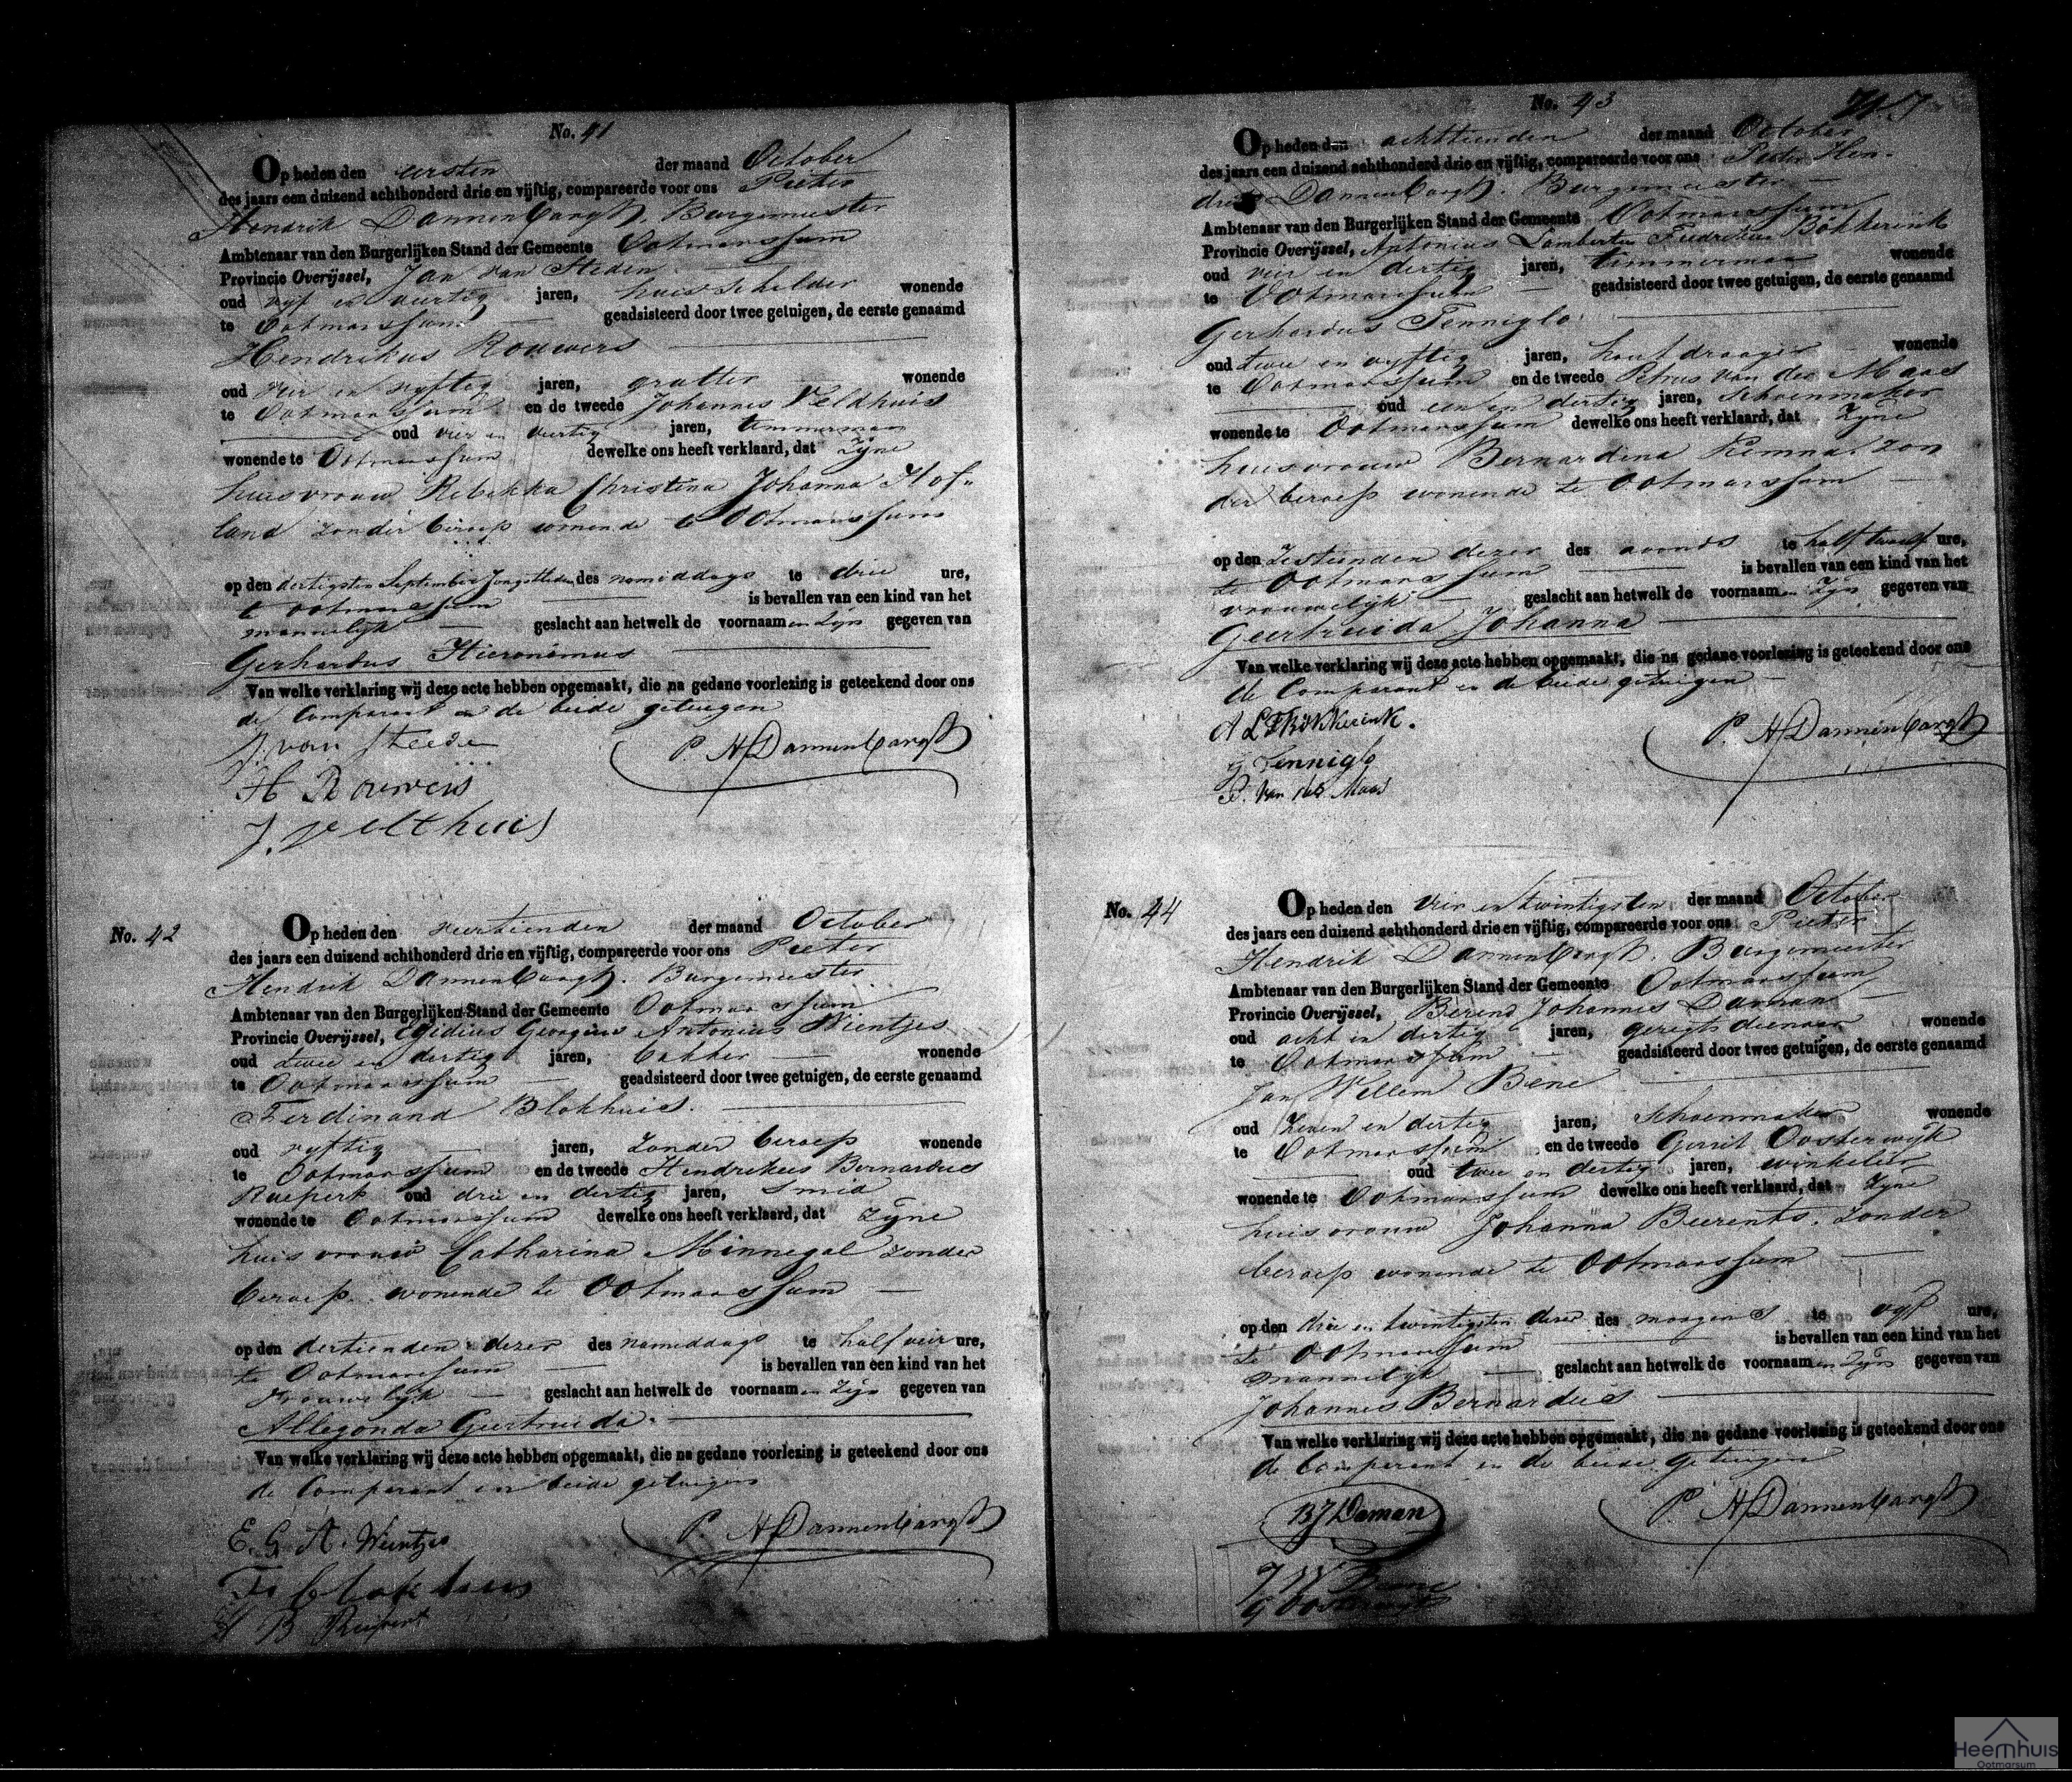 No. 41
Op heden den eersten der maand October
des jaars een duizend achthonderd drie en vijftig, compareerde voor ons Pieter
Hendrik Dannenbargh. Burgemeester
Ambtenaar van den Burgerlijken Stand der Gemeente Ootmarssum
Provincie Overijssel, Jan van Steden
oud vyf en veertig jaren, huisschilder wonende
te Ootmarssum geadsisteerd door twee getuigen, de eerste genaamd
Hendrikus Rouwers
oud vier en vyftig jaren, wonende
te Ootmarssum en de tweede Johannes Veldhuis
oud vier en veertig jaren, timmerman
wonende te Ootmarssum dewelke ons heeft verklaard, dat zijne
huisvrouw Rebekka Christina Johanna Hof-
land zonder beroep wonende te Ootmarssum
op den dertigsten September jongstleden des namiddags te drie ure,
te Ootmarssum is bevallen van een kind van het
mannelijk geslacht aan hetwelk de voornaamen zijn gegeven van
Gerhardus Hieronimus
Van welke verklaring wij deze acte hebben opgemaakt, die na gedane voorlezing is geteekend door ons
de Comparant en de beide getuigen
J. van Steede
P. H Dannenbargh
H Rouwers
J. Velthuis
No. 42
Op heden den veertienden der maand October
des jaars een duizend achthonderd drie en vijftig, compareerde voor ons Pieter
Hendrik Dannenbargh. Burgemeester
Ambtenaar van den Burgerlijken Stand der Gemeente Ootmarssum
Provincie Overijssel, Egidius Georgius Antonius Wientjes
oud twee en dertig jaren, bakker wonende
te Ootmarssum geadsisteerd door twee getuigen, de eerste genaamd
Ferdinand Blokhuis.
oud vyftig jaren, zonder beroep wonende
te Ootmarssum en de tweede Hendrikus Bernardus
Rueperk oud drie en dertig jaren, Smid
wonende te Ootmarssum dewelke ons heeft verklaard, dat zijne
huisvrouw Catharina Minnegal zonder
beroep wonende te Ootmarssum
op den dertienden dezer des namiddags te half vier ure,
te Ootmarssum is bevallen van een kind van het
vrouwelijk geslacht aan hetwelk de voornaamen zijn gegeven van
Allegonda Geertruida.
Van welke verklaring wij deze acte hebben opgemaakt, die na gedane voorlezing is geteekend door ons
de Comparant en beide getuigen
E. G A. Wientjes
P. H Dannenbargh
F. Blokhuis
H B
No. 43
Op heden den achttienden der maand October
des jaars een duizend achthonderd drie en vijftig, compareerde voor ons Pieter Hen-
drik Dannenbargh. Burgemeester
Ambtenaar van den Burgerlijken Stand der Gemeente Ootmarssum
Provincie Overijssel, Antonius Lambertus Fredrikus Bökkerink
oud vier en dertig jaren, timmerman wonende
te Ootmarssum geadsisteerd door twee getuigen, de eerste genaamd
Gerhardus Tenniglo
oud twee en vyftig jaren, houtdraager wonende
te Ootmarssum en de tweede Petrus van der Maas
oud een en dertig jaren, Schoenmaker
wonende te Ootmarssum dewelke ons heeft verklaard, dat zijne
huisvrouw Bernardina Kemna. zon
der beroep wonende te Ootmarssum
op den zestienden dezer des avonds te half twaalf ure,
te Ootmarssum is bevallen van een kind van het
vrouwelijk geslacht aan hetwelk de voornaamen zijn gegeven van
Geertruida Johanna
Van welke verklaring wij deze acte hebben opgemaakt, die na gedane voorlezing is geteekend door ons
de Comparant en de beide getuigen
A L F Bökkerink.
P. H Dannenbargh
G Tenniglo
P. van der Maas
No. 44
Op heden den vier en twintigsten der maand October
des jaars een duizend achthonderd drie en vijftig, compareerde voor ons Pieter
Hendrik Dannenbargh. Burgemeester
Ambtenaar van den Burgerlijken Stand der Gemeente Ootmarssum
Provincie Overijssel, Berend Johannes Daman
oud acht en dertig jaren, geregtsdienaar wonende
te Ootmarssum geadsisteerd door twee getuigen, de eerste genaamd
Jan Willem Bene
oud zeven en dertig jaren, Schoenmaker wonende
te Ootmarssum en de tweede Gerrit Oosterwijk
oud twee en dertig jaren, winkelier
wonende te Ootmarssum dewelke ons heeft verklaard, dat zijne
huisvrouw Johanna Beerents. zonder
beroep wonende te Ootmarssum
op den drie en twintigsten dezer des morgens te vyf ure,
te Ootmarssum is bevallen van een kind van het
mannelijk geslacht aan hetwelk de voornaamen zijn gegeven van
Johannes Bernardus
Van welke verklaring wij deze acte hebben opgemaakt, die na gedane voorlezing is geteekend door ons
de Comparant en de beide getuigen
BJ Daman
P. H Dannenbargh
J W Bene
G Oosterwijk
Heemhuis
Ootmarsum